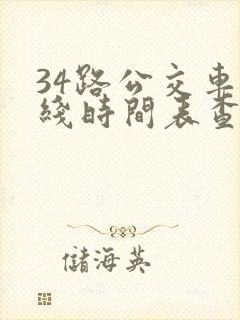 34路公交車
綫時間表查
儲海英